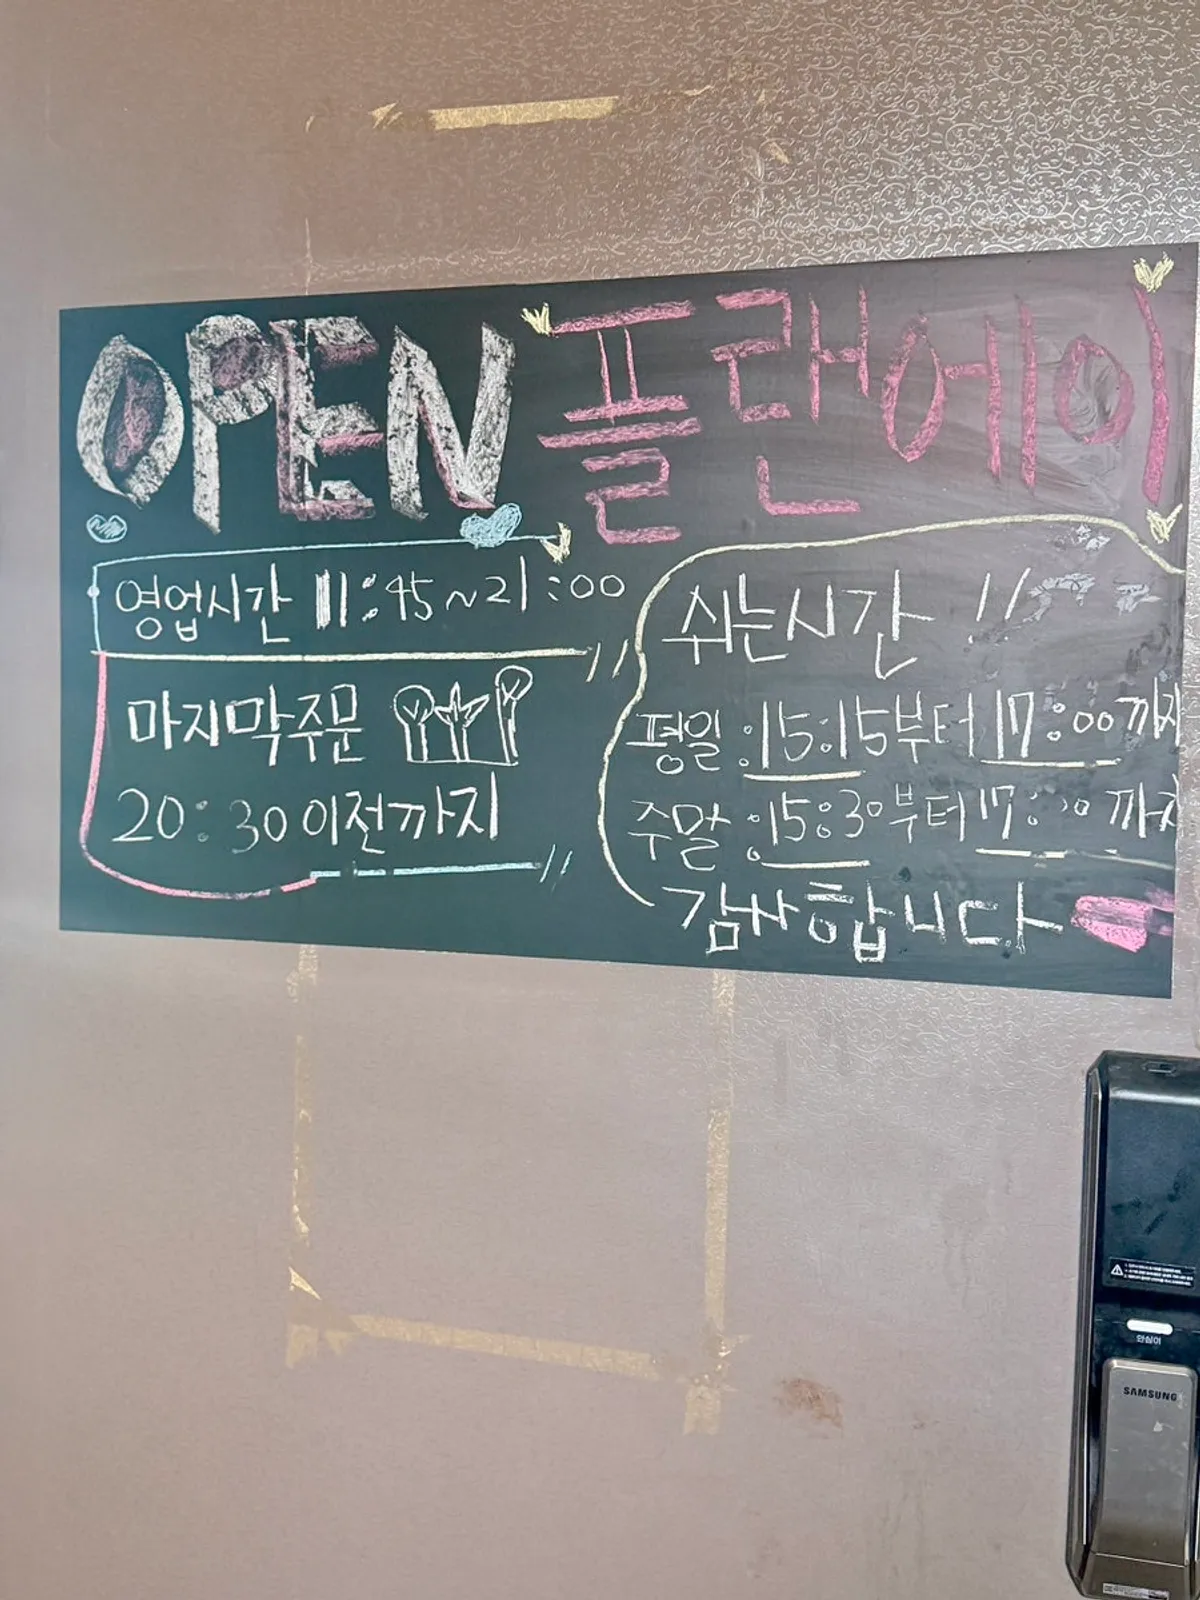 OPEN 플랜에이
영업시간 11:45~21:00
마지막주문
20:30 이전까지
쉬는시간 !!
평일 :15:15부터 17:00까지
주말 :15:30부터 17:00까지
감사합니다
안심이
SAMSUNG